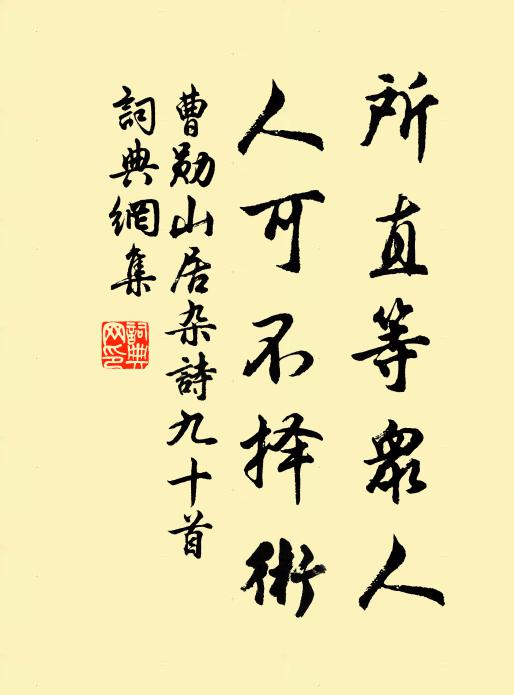 所直等眾人
人可不择術
曹勋山居杂詩九十首
詞典網集
詞典網印